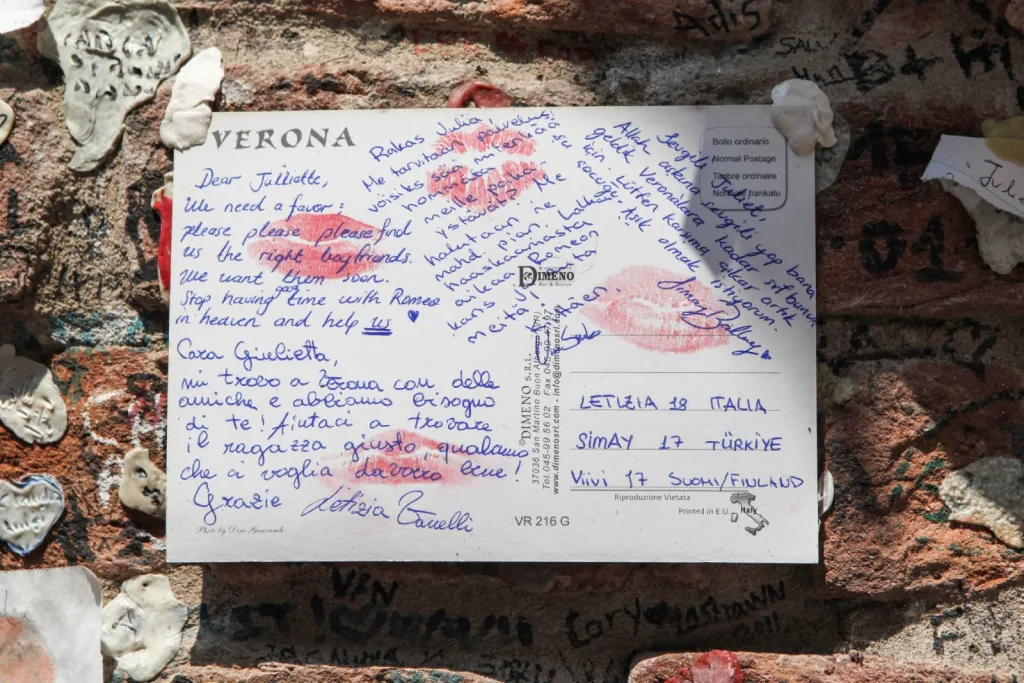 VERONA
Dear Julliette,
We need a favor:
please please please find
us the right boyfriends.
We want them soon.
Stop having good time with Romeo
in heaven and help us ♥
Cara Giulietta,
mi trovo a Verona con delle
amiche e abbiamo bisogno
di te! Aiutaci a trovare
il ragazzo giusto, qualcuno
che ci voglia davvero bene!
Grazie
Letizia
Photo by Dino
VR 216 G
Rakas Julia
Me tarvitaan palvelus:
voisiks
meille
ystäväs Me
halutaan ne
mahd. pian. Lakkaa
haaskaamasta
aikaa Romeon
kans ja auta
meitä!
Sevgili Juliet,
Allah adına sevgili yap bana
geldik Veronalara kadar sırf bunun
için. Lütfen karşıma çıkar artık
şu çocuğu. Aşık olmak istiyorum.
Simay
Bollo ordinario
Normal Postage
Timbre ordinaire
Normale frankatu
DIMENO
Art & Design
©DIMENO S.R.L.
37036 San Martino Buon Albergo (VR)
Tel.045-99 56 02 Fax 045-99
www.dimenosrl.com - info@dimenosrl.com
LETIZIA 18 ITALIA
SİMAY 17 TÜRKİYE
Viivi 17 SUOMI/FINLAND
Riproduzione Vietata
Printed in E.U.
Italy
Adis
01
VAN
Cory
LASHAWN